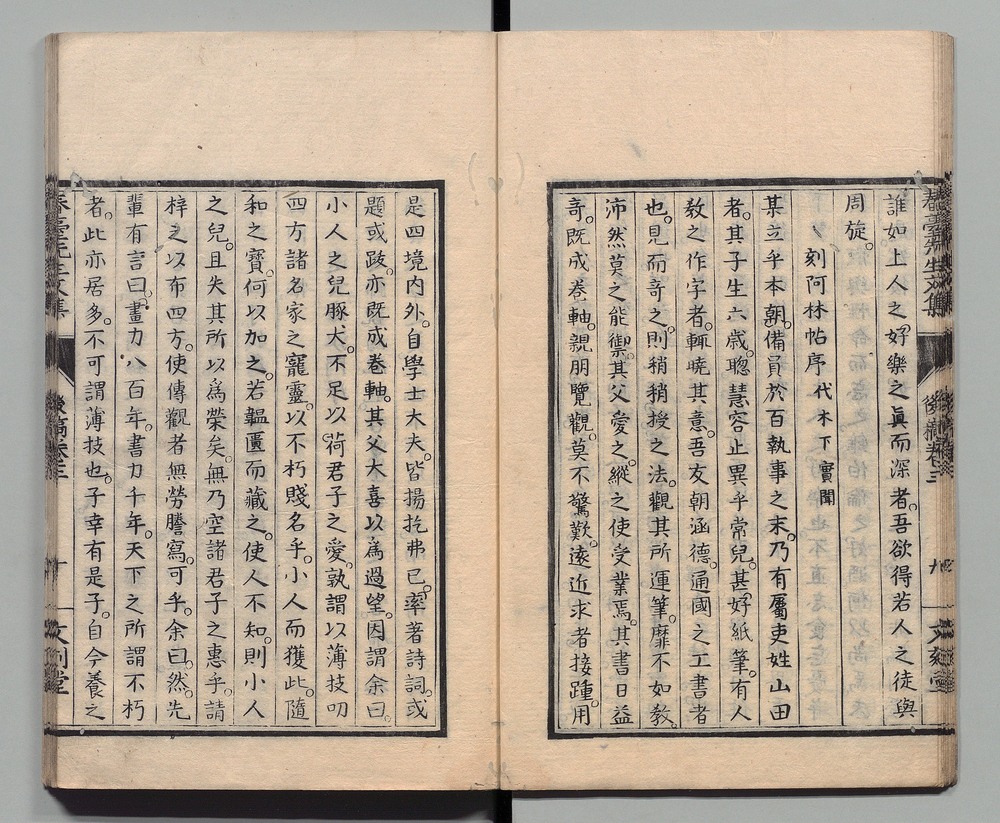 誰如上人之好樂之眞而深者。吾欲得若人之徒與
周旋。
刻阿林帖序 代木下實聞
某立乎本朝。備員於百執事之末。乃有屬吏姓山田
者。其子生六歲。聰慧容止異乎常兒。甚好紙筆。有人
教之作字者。輒曉其意。吾友朝涵德。通國之工書者
也。見而奇之。則稍稍授之法。觀其所運筆。靡不如教。
沛然莫之能禦。其父愛之。縱之使受業焉。其書日益
奇。既成卷軸。親朋覽觀。莫不驚歎。遠近求者接踵。用
是四境内外。自學士大夫。皆揚扢弗已。率著詩詞。或
題或跋。亦既成卷軸。其父大喜以爲過望。因謂余曰。
小人之兒豚犬。不足以荷君子之愛。孰謂以薄技叨
四方諸名家之寵靈。以不朽賤名乎。小人而獲此。隨
和之寶。何以加之。若韞匱而藏之。使人不知。則小人
之兒。且失其所以爲榮矣。無乃空諸君子之惠乎。請
梓之以布四方。使傳觀者無勞謄寫。可乎。余曰。然。先
輩有言曰。畫力八百年。書力千年。天下之所謂不朽
者。此亦居多。不可謂薄技也。子幸有是子。自今養之